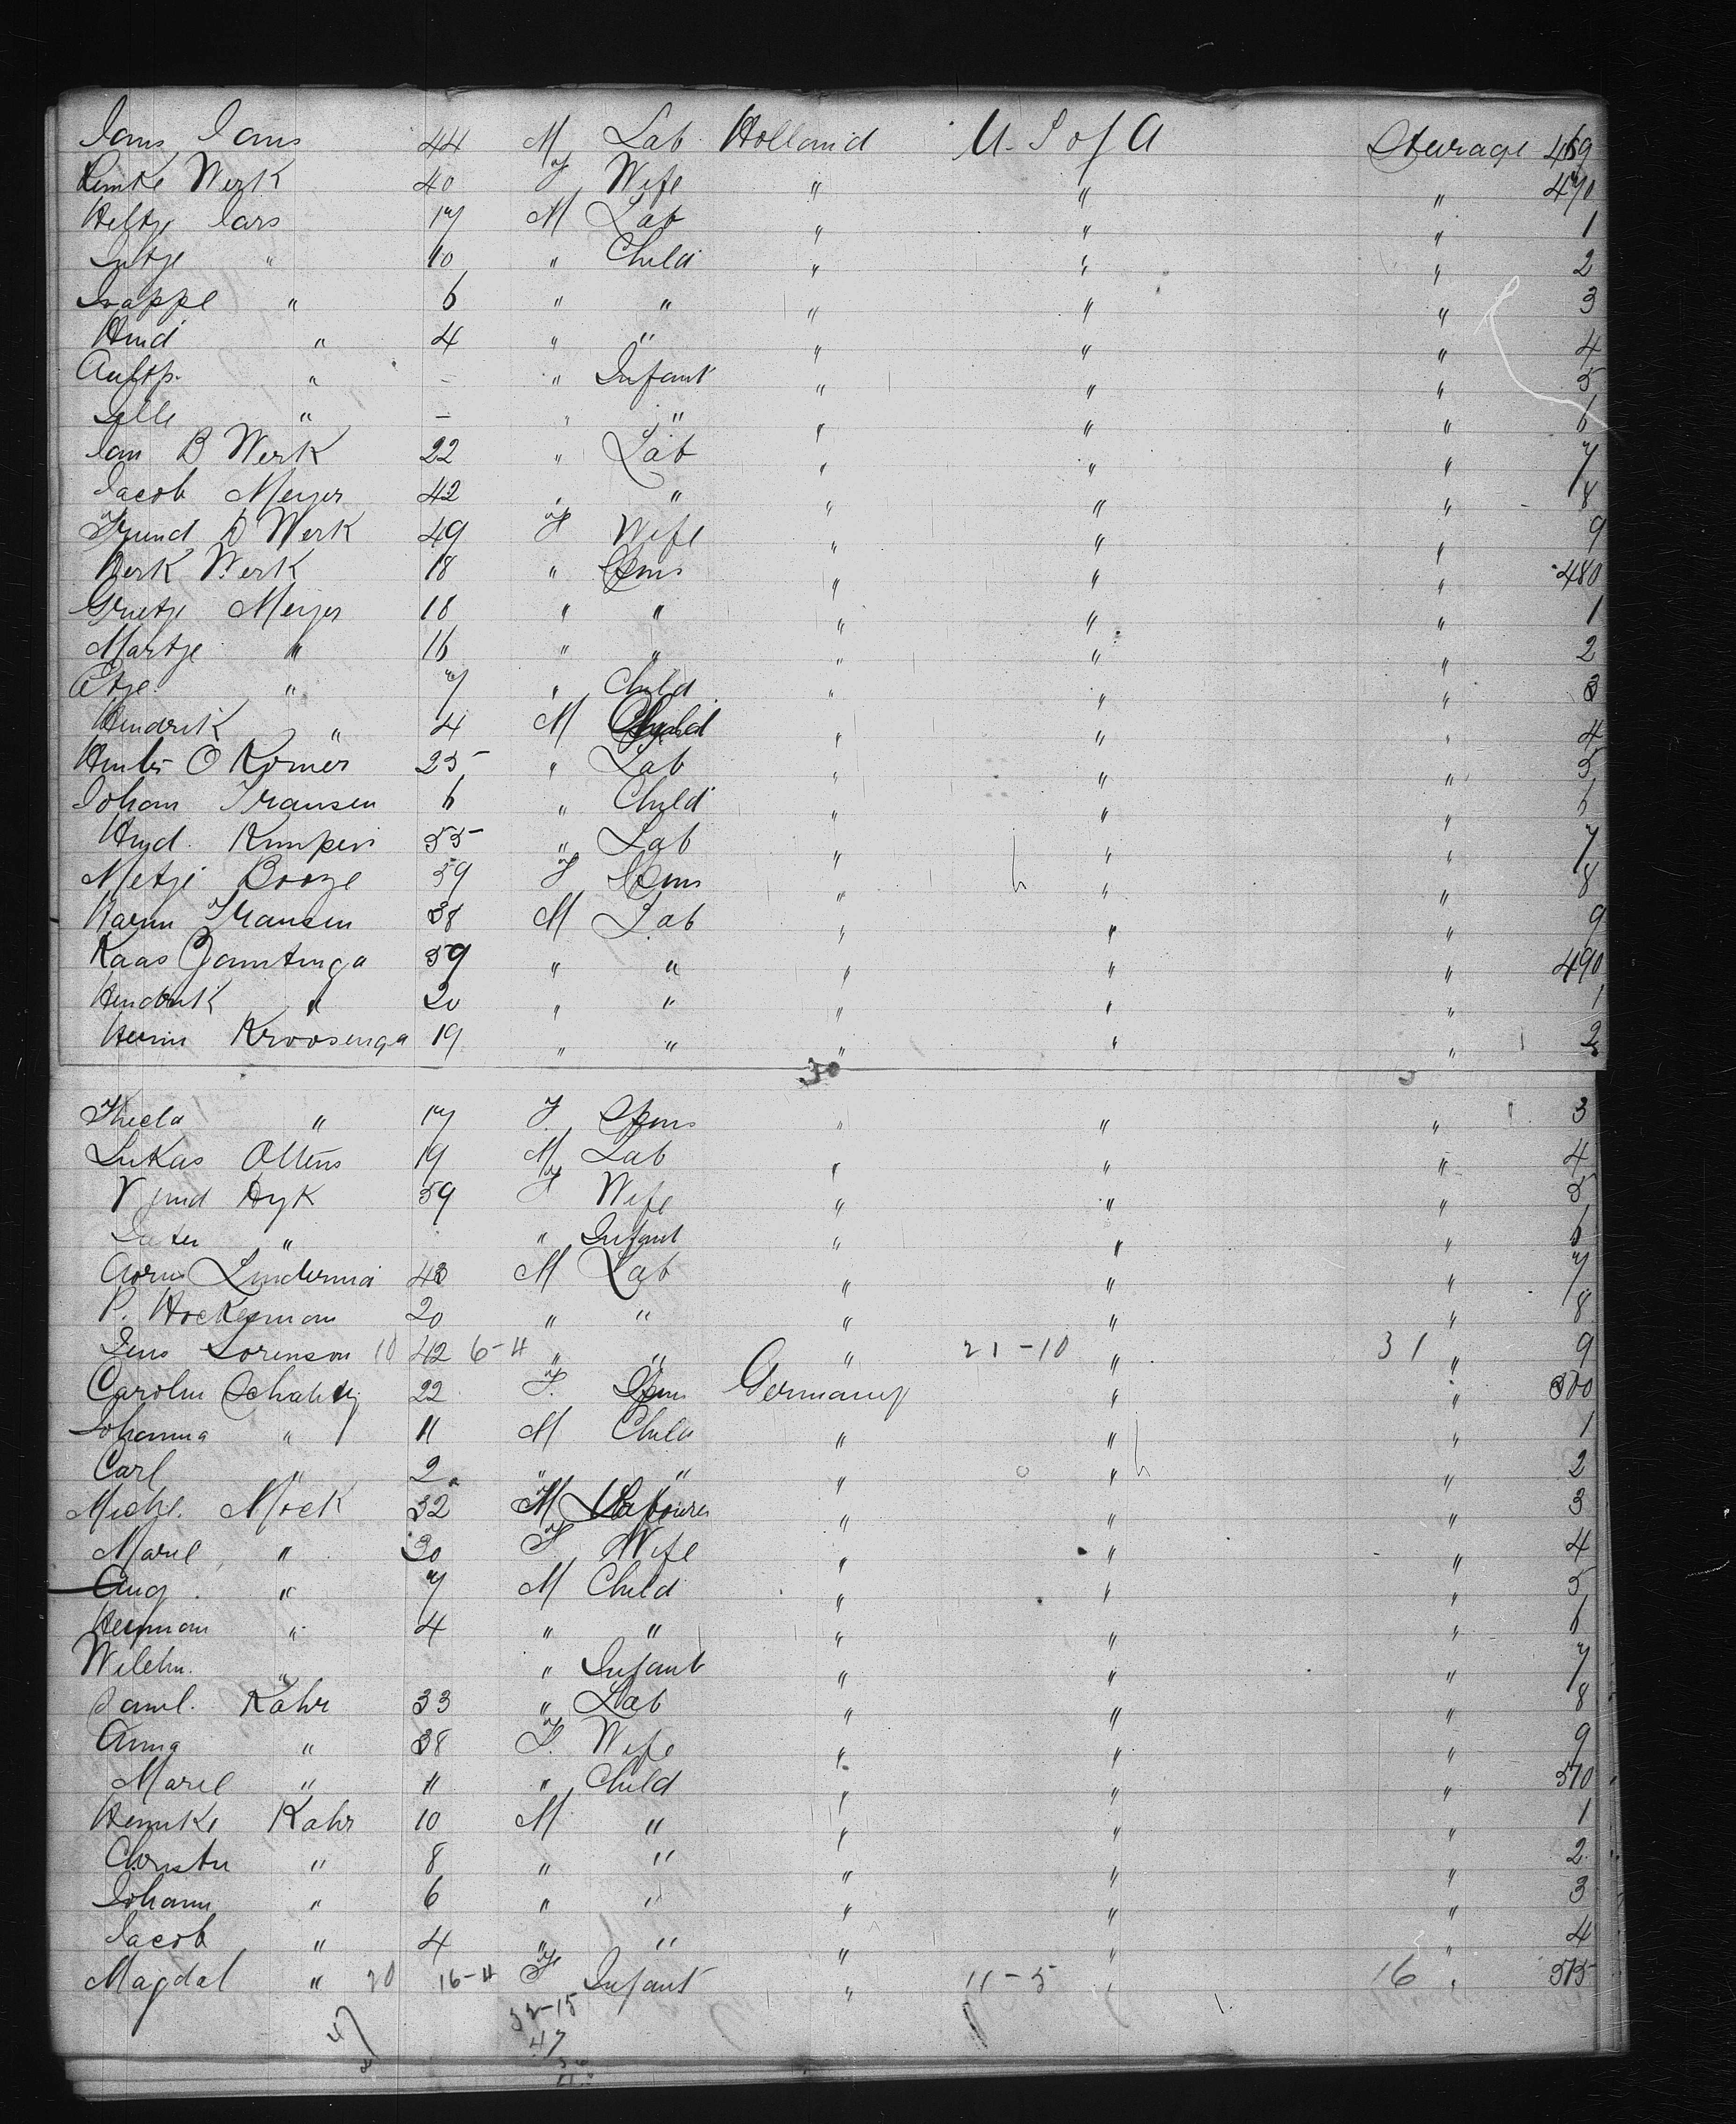 Jans Jans 44 M Lab Holland U. S of A Steerage 469
Remke Werk 40 F Wife " " " 470
Heltje Jars 17 M Lab " " " 1
Lutje " 10 " Child " " " 2
Trappe " 6 " " " " " 3
Hind " 4 " " " " " 4
" - " Infant " " " 5
Jelle " - " " " " " 6
Jan B Werk 22 " Lab " " " 7
Jacob Meyer 42 " " " " " 8
Trund D Werk 49 F Wife " " " 9
Derk Werk 18 " Spins " " " 480
Grietje Meyer 18 " " " " " 1
Martje " 16 " " " " " 2
Etje " 7 " Child " " " 3
Hindrik " 4 M Child " " " 4
O Komer 25 " Lab " " " 5
Johan Fransen 6 " Child " " " 6
Hind. Kimpen 35 " Lab " " " 7
Metje Booze 39 F Spins " " " 8
Harm Fransen 38 M Lab " " " 9
Kaas Gamtinga 59 " " " " " 490
Hendrik " 20 " " " " " 1
Harm Kroosenga 19 " " " " " 2
30
Theda " 17 F. Spins " " " 3
Lukas Ottens 19 M Lab " " " 4
Dyk 39 F Wife " " " 5
" " Infant " " " 6
Linderma 43 M Lab " " " 7
P. Hockesmam 20 " " " " " 8
Jens Lorenson 10 42 6-4 " " " 21-10 " 31 " 9
Carolin 22 F. Spins Germany " " 500
Johanna " 11 M Child " " " 1
Carl " 2 " " " " " 2
Michl. Mock 32 M Labourer " " " 3
Marie " 30 F Wife " " " 4
Aug. " 7 M Child " " " 5
Hermann " 4 " " " " " 6
Wilhm. " " Infant " " " 7
Saml. Kahr 33 " Lab " " " 8
Anna " 38 F. Wife " " " 9
Marie " 11 " Child " " " 510
Hennke Kahr 10 M " " " " 1
Christn " 8 " " " " " 2
Johann " 6 " " " " " 3
Jacob " 4 " " " " " 4
Magdal " 20 16-4 F Infant " 11-5 " 16 " 515
32-15
47